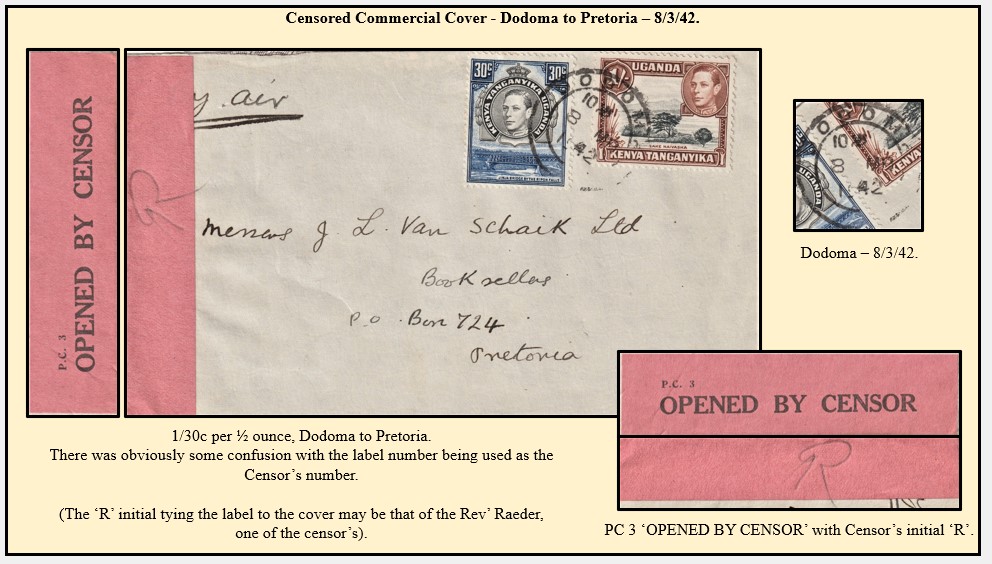 Censored Commercial Cover - Dodoma to Pretoria – 8/3/42.
P.C. 3
OPENED BY CENSOR
By air
R
30c 30c
KENYA TANGANYIKA UGANDA
UGANDA
1/-
LAKE NAIVASHA
KENYA TANGANYIKA
DODOMA
10
8 MR
42
Messrs J. L. Van Schaik Ltd
Booksellers
P.O. Box 724
Pretoria
Dodoma – 8/3/42.
P.C. 3
OPENED BY CENSOR
R
1/30c per ½ ounce, Dodoma to Pretoria.
There was obviously some confusion with the label number being used as the
Censor’s number.
(The ‘R’ initial tying the label to the cover may be that of the Rev’ Raeder,
one of the censor’s).
PC 3 ‘OPENED BY CENSOR’ with Censor’s initial ‘R’.